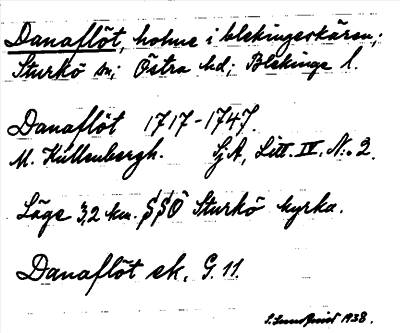 Danaflöt, holme i blekingeskären;
Sturkö sn; Östra hd; Blekinge l.
Danaflöt 1717-1747.
M. Kullenbergh. SjA, Litt. IV. N:o 2.
Läge 3,2 km. SSO Sturkö kyrka.
Danaflöt ek. G. 11.
1938.